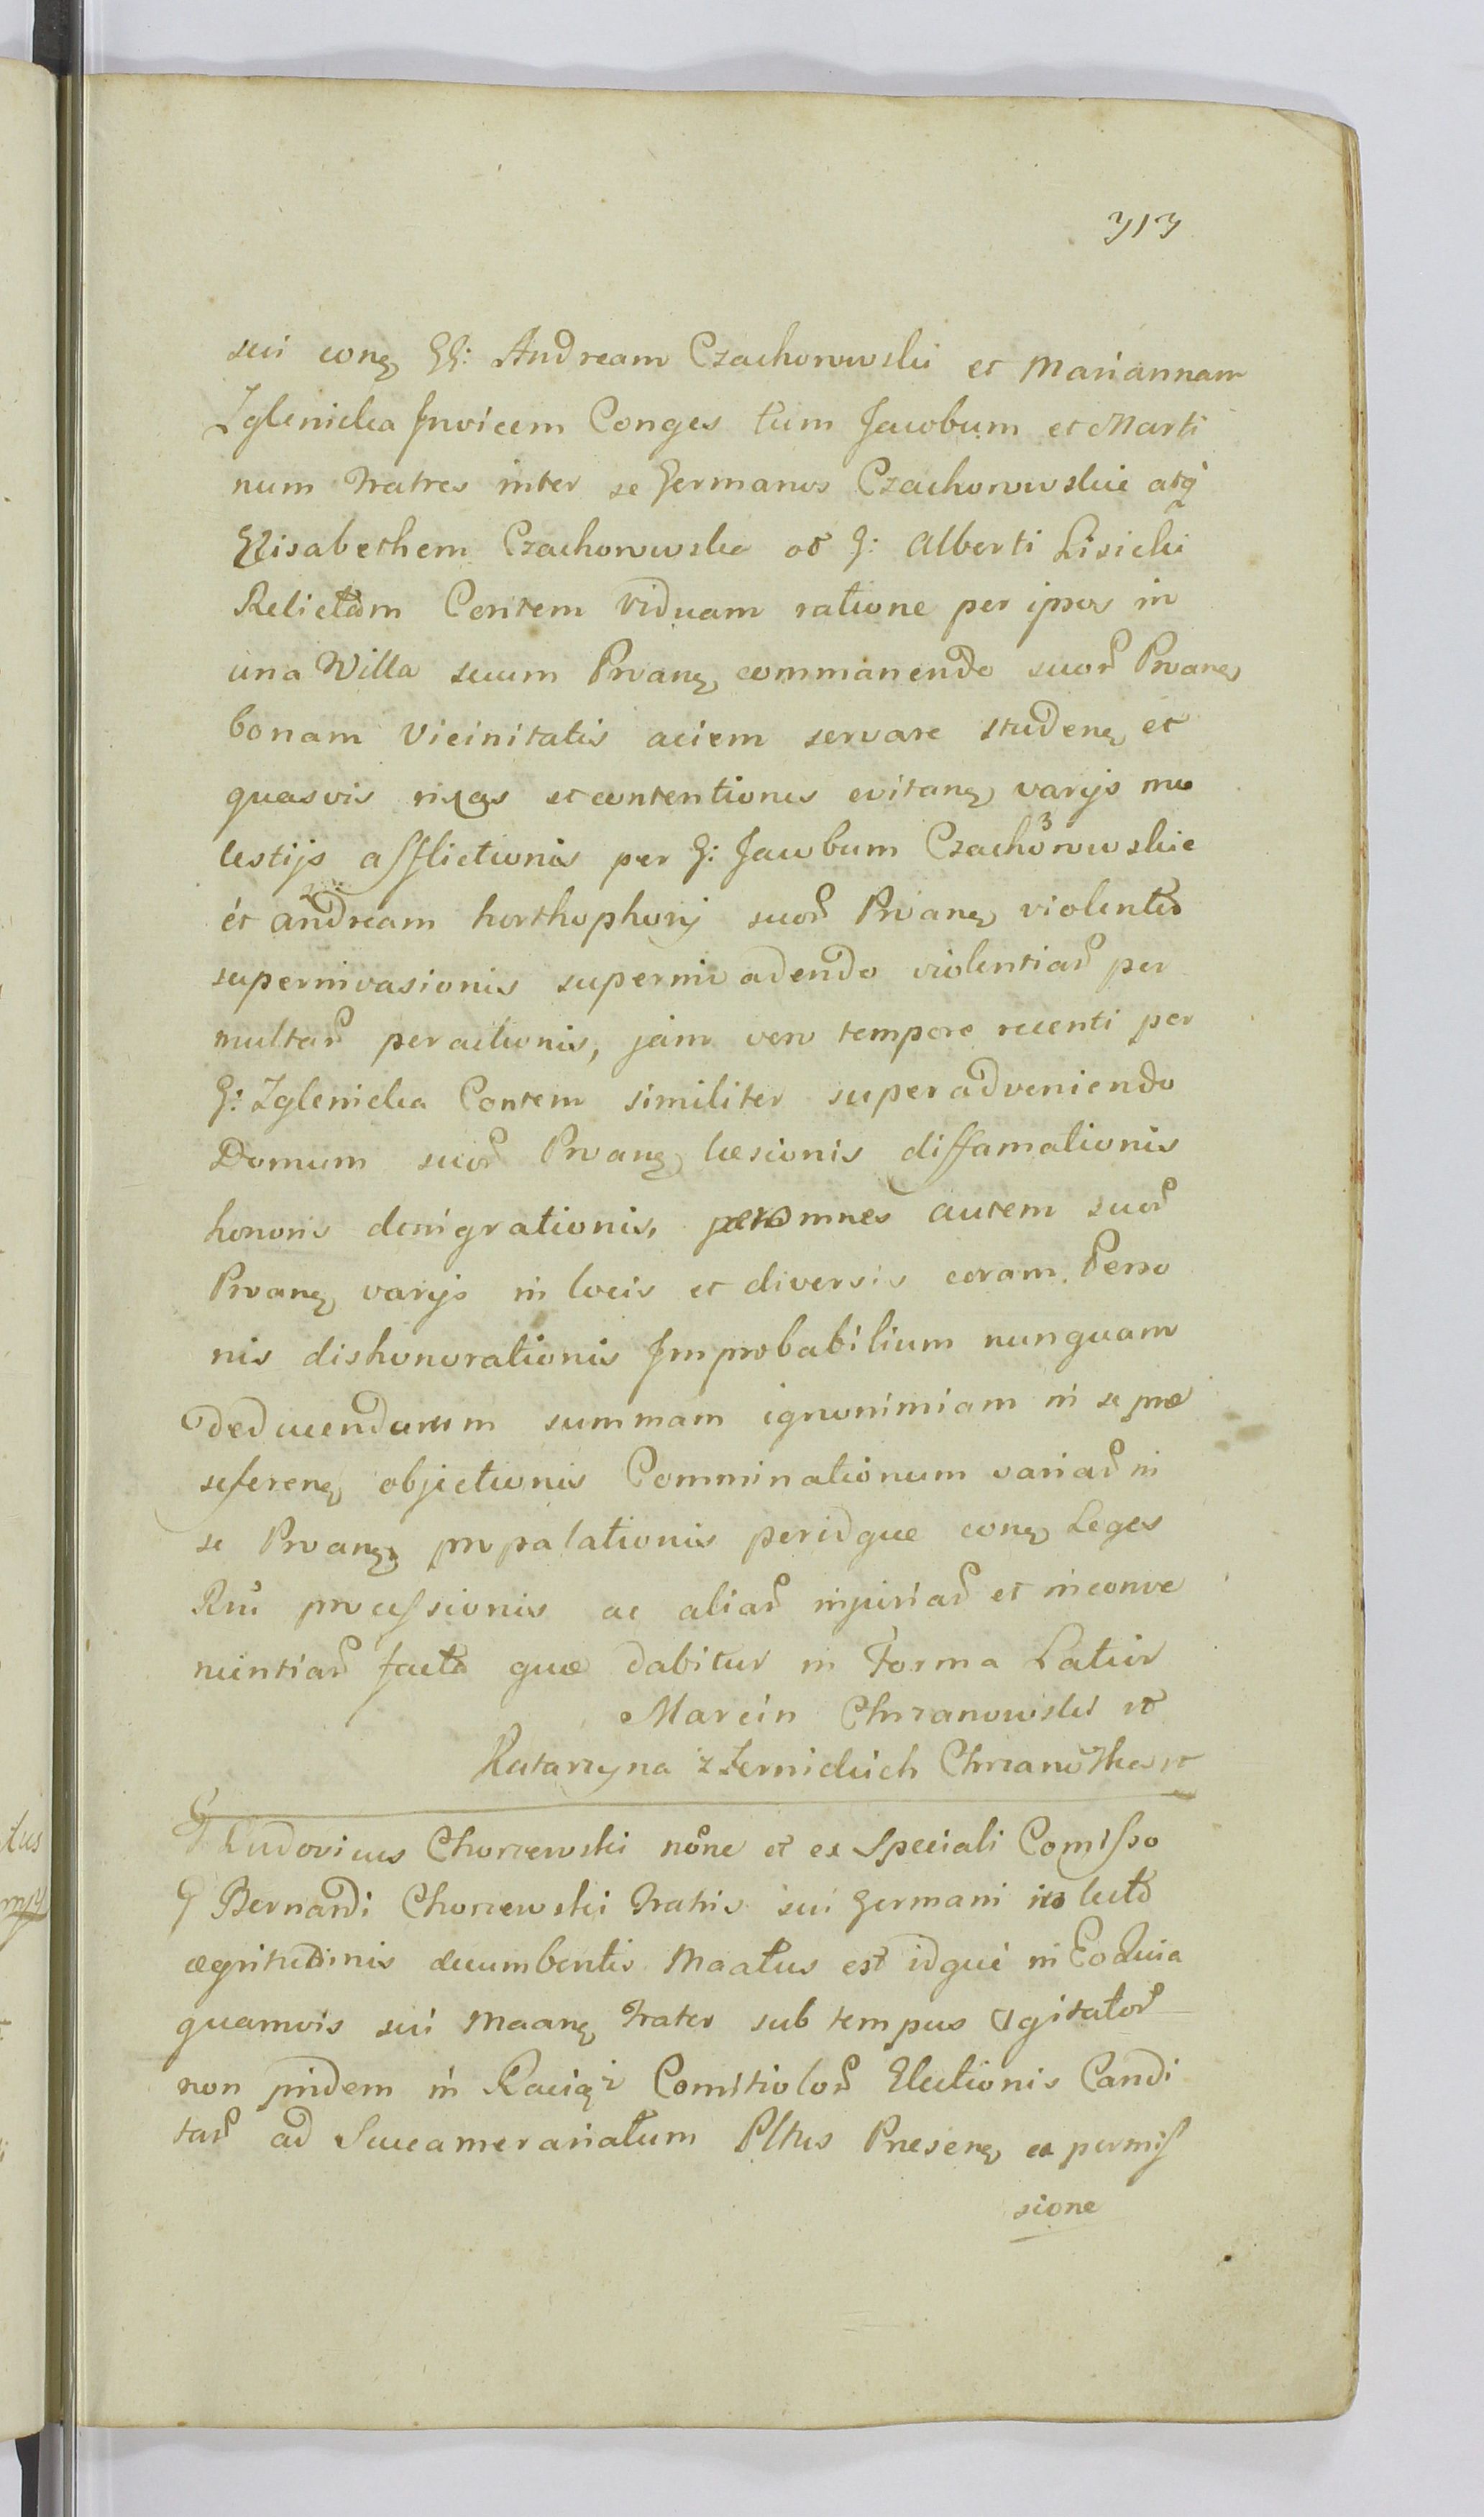 313
sui conq GG: Andream Czachorowski et Mariannam
Zglenicka Invicem Conges tum Jacobum et Marti
num Fratres inter se Germanos Czachorowskie atq
Elisabethem Czachorowska olt G: Alberti Lisicki
Relictam Contem Viduam ratione per ipsos in
una Villa secum Prvanq commanendo suor Prvanq
bonam Vicinitatis aciem servare studenq et
quasvis rixas et contentiones evitanq varijs mo
lestijs afflictionis per G: Jacobum Czachorowskie
et andream horthophorij suor Prvanq violentes
superinvasionis superinvadendo violentiar per
multar peractionis, jam vero tempore recenti per
G: Zglenicka Contem similiter superadveniendo
Domum suor Prvanq læsionis diffamationis
honoris denigrationis, per omnes autem suor
Prvanq varijs in locis et diversis coram Perso
nis dishonorationis Improbabilium nunquam
deducendarum summam ignonimiam in se præ
seferenq objectionis Comminationum variar in
se Prvanq propalationis peridque conq Leges
Rni processionis ac aliar injuriar et inconve
nientiar facta quæ dabitur in Forma Latior
Marcin Chrzanowski
Katarzyna z Zernickich Chrzanowska
Ludovicus Chorzewski nõne et ex Speciali Comisso
G Bernardi Chorzewski Fratris sui Germani in lecto
ægritudinis decumbentis Maatus est idque in Eo Quia
quamvis sui Maanq Frater sub tempus agitator
non pridem in Raciąż Comitiolor Electionis Candi
tar ad Succamerariatum Pltus Præsenq ex permis
sione